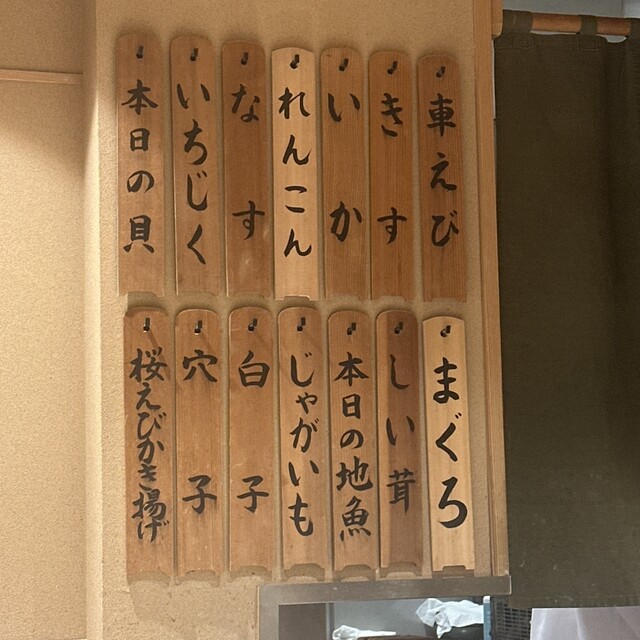 車えび
きす
いか
れんこん
なす
いちじく
本日の貝
まぐろ
しい茸
本日の地魚
じゃがいも
白子
穴子
桜えびかき揚げ